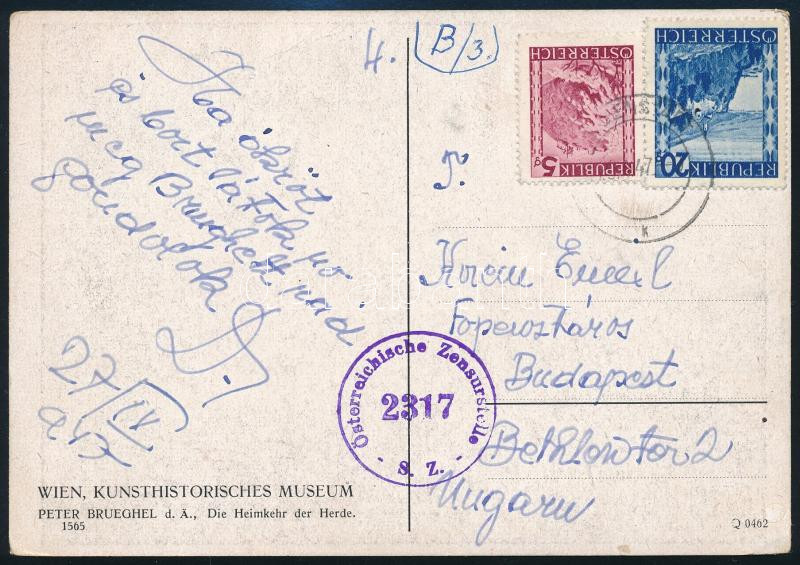 4. B/3.
Ha ökröt
és bort látok
meg Brueghelt rád
gondolok
D.
27/IV
ÖSTERREICH
REPUBLIK
5g
ÖSTERREICH
REPUBLIK
20g
47
k
Emil
Budapest
Bethlen tér 2
Ungarn
Österreichische Zensurstelle
2317
- S. Z. -
WIEN, KUNSTHISTORISCHES MUSEUM
PETER BRUEGHEL d. Ä., Die Heimkehr der Herde.
1565
Q 0462